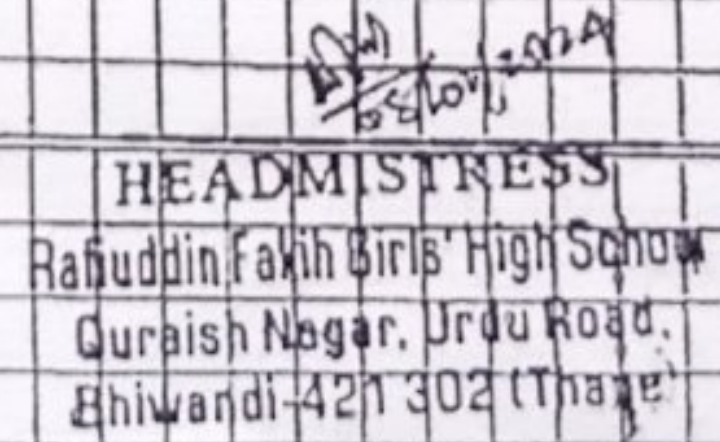 05/07/2024
HEADMISTRESS
Rafiuddin Fakih Girls' High School
Quraish Nagar, Urdu Road,
Bhiwandi-421 302 (Thane)